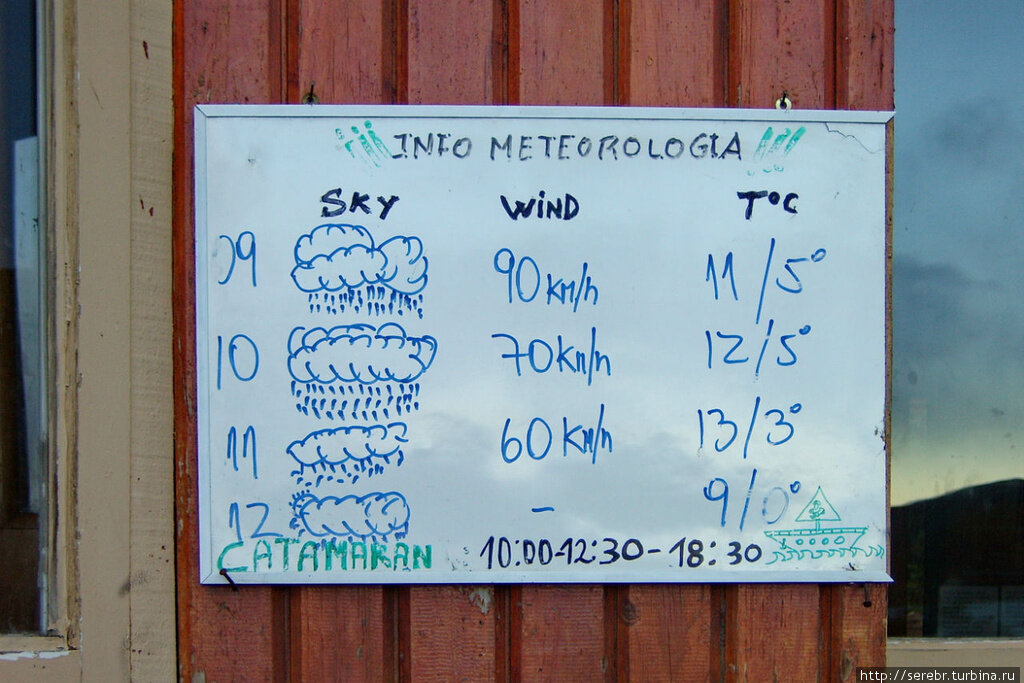 INFO METEOROLOGIA
SKY WIND T°C
09 90 km/h 11/5°
10 70 Km/h 12/5°
11 60 Km/h 13/3°
12 - 9/0°
CATAMARAN 10:00-12:30-18:30
http://serebr.turbina.ru